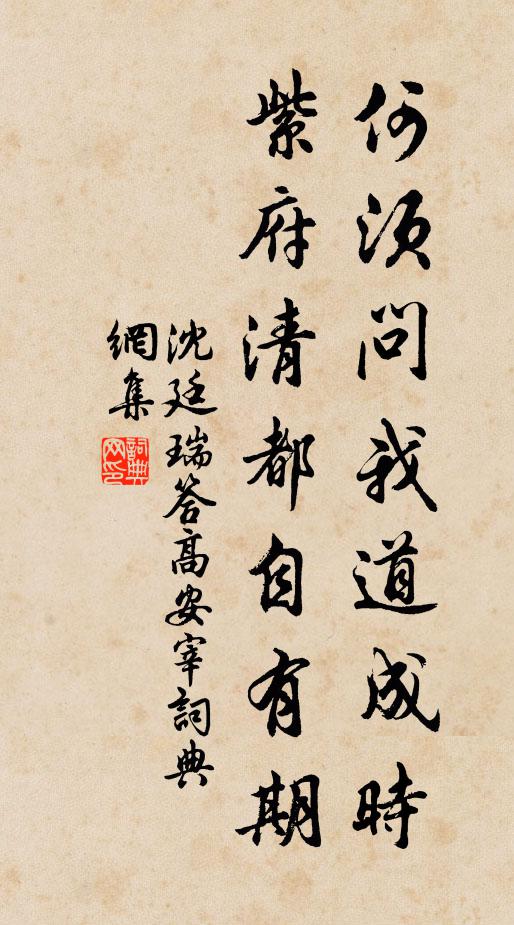 何須問我道成時
紫府清都自有期
沈廷瑞答高安宰詞典
網集
詞典
网印